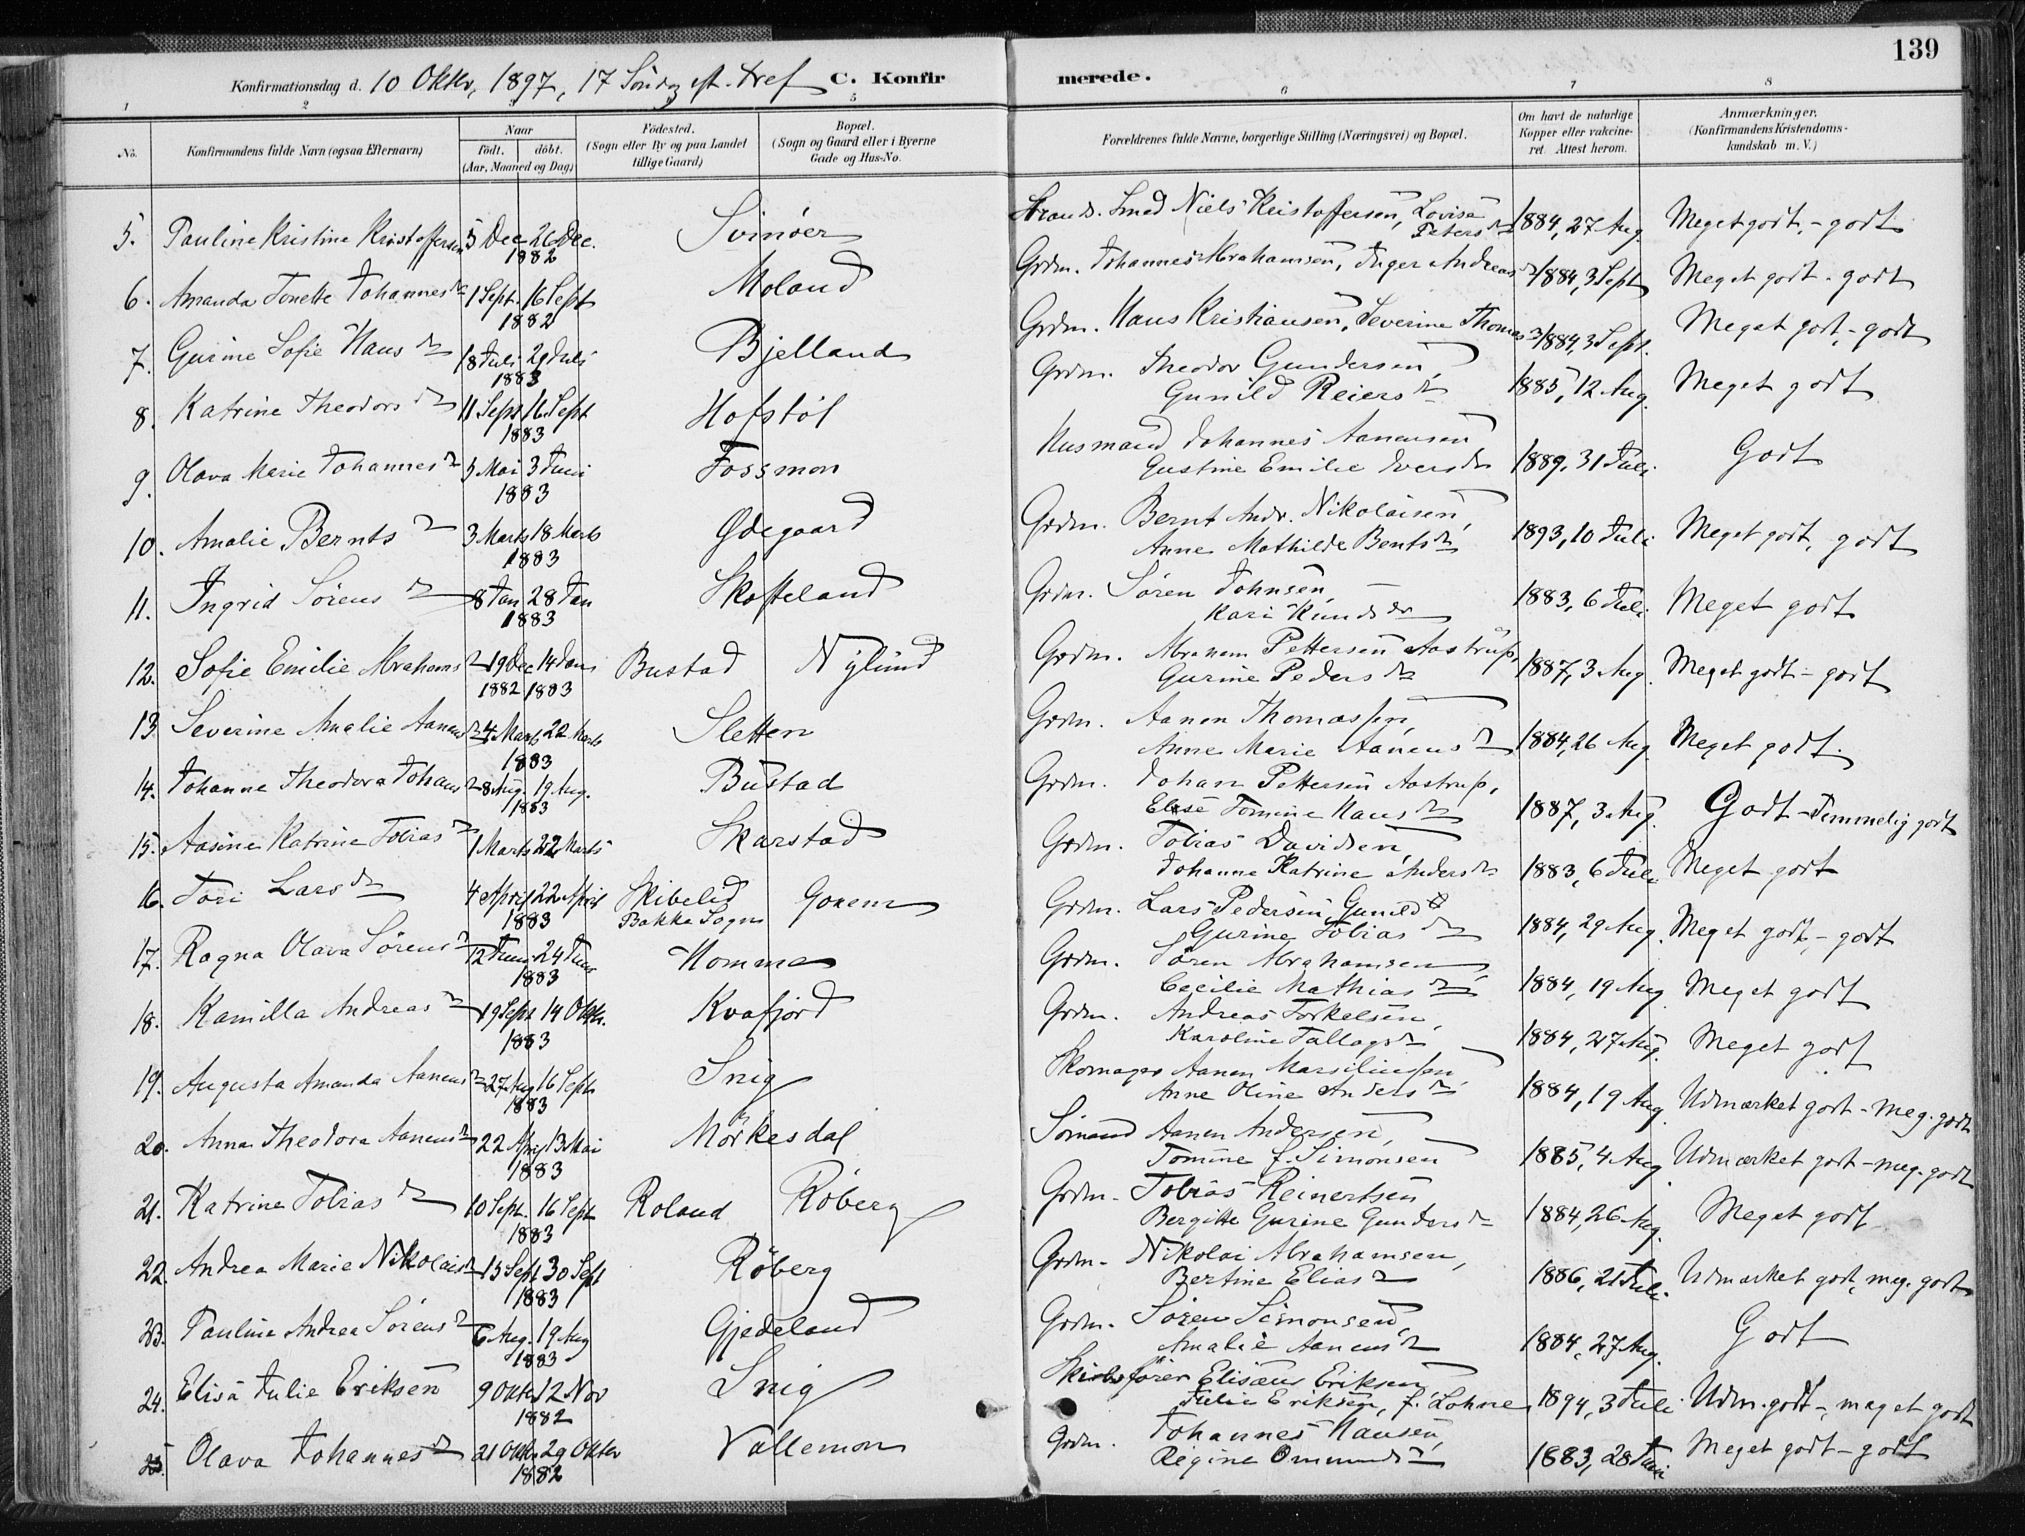 139
Konfirmationsdag d. 10 Oktbr, 1897, 17 Söndag eft. tref C. Konfirmerede.
1 2 3 5 6 7 8
No. Konfirmandens fulde Navn (ogsaa Efternavn) Naar Födt. döbt. (Aar, Maaned og Dag) Födested. (Sogn eller By og paa Landet tillige Gaard) Bopæl. (Sogn og Gaard eller i Byerne Gade og Hus-No. Forældrenes fulde Navne, borgerlige Stilling (Næringsvei) og Bopæl. Om havt de naturlige Kopper eller vaccineret. Attest herom. Anmærkninger. (Konfirmandens Kristendomskundskab m. V.)
5. Pauline Kristine Kristoffersen 5 Dec 26 Dec. 1882 Svinöer Strands. Smed Niels Kristoffersen, Lovise Petersdr 1884, 27 Aug. Meget godt, - godt
6. Amanda Tonette Johannesdr 1 Sept. 16 Sept 1882 Moland Grdm. Johannes Abrahamsen, Inger Andreasdr 1884, 3 Sept Meget godt - godt
7. Gurine Sofie Hansdr 18 Juli 29 Juli 1883 Bjelland Grdm. Hans Kristiansen, Severine Thomasdr 1884, 3 Sept. Meget godt, - godt
8. Katrine Theodorsdr 11 Sept 16 Sept 1883 Hofstöl Grdm. Theodor Gundersen, Gunild Reiersdr 1885, 12 Aug. Meget godt
9. Olava Marie Johannesdr 5 Mai 3 Juni 1883 Fossmon Husmand Johannes Aanensen Gustine Emilie Iversdr 1889, 31 Juli Godt
10. Amalie Berntsdr 3 Marts 18 Marts 1883 Ödegaard Grdm. Bernt Andr. Nikolaisen, Anne Mathilde Bentsdr 1893, 10 Juli Meget godt, godt
11. Ingrid Sörensdr 8 Jan 28 Jan 1883 Skofteland Grdm. Sören Johnsen, Kari Knudsdr 1883, 6 Juli Meget godt
12. Sofie Emilie Abrahamsdr 19 Dec 14 Jan 1882 1883 Bustad Nylund Grdm. Abraham Pettersen Aastrup, Gurine Pedersdr 1887, 3 Aug. Meget godt - godt
13. Severine Amalie Aanensdr 4 Marts 22 Marts 1883 Sletten Grdm. Aanen Thomassen, Anne Marie Aanensdr 1884, 26 Aug Meget godt.
14. Johanne Theodora Johansdr 8 Aug. 19 Aug. 1883 Bustad Grdm. Johan Pettersen Aastrup, Elise Tomine Hansdr 1887, 3 Aug. Godt - Temmelig godt
15. Aasine Katrine Tobiasdr 1 Marts 22 Marts Skarstad Grdm. Tobias Davidsen, Johanne Katrine Andersdr 1883, 6 Juli Meget godt
16. Tori Larsdr 4 April 22 April 1883 Skibelid Bakke Sogn Grdm. Lars Pedersen, Gunild Gurine Tobiasdr 1884, 29 Aug. Meget godt, - godt
17. Ragna Olava Sörensdr 12 Juni 24 Juni 1883 Homme Grdm. Sören Abrahamsen, Cecilie Mathiasdr 1884, 19 Aug Meget godt
18. Kamilla Andreasdr 19 Sept 14 Oktr. 1883 Kvafjord Grdm. Andreas Torkelsen, Karoline Tallagsdr 1884, 27 Aug. Meget godt
19. Augusta Amanda Aanensdr 27 Aug 16 Sept 1883 Snig Skomager Aanen Marsiliussen, Anne Oline Andersdr 1884, 19 Aug Udmærket godt - meg. godt
20. Anna Theodora Aanensdr 22 April 13 Mai 1883 Mörkesdal Sömand Aanen Andersen, Tomine f. Simonsen 1885, 4 Aug Udmærket godt - meg. godt
21. Katrine Tobiasdr 10 Sept. 16 Sept 1883 Roland Röberg Grdm. Tobias Reinertsen Bergitte Gurine Gundersdr 1884, 26 Aug. Meget godt
22. Andrea Marie Nikolaisdr 15 Sept 30 Sept 1883 Röberg Grdm. Nikolai Abrahamsen, Bertine Eliasdr 1886, 21 Juli Udmærket godt, meg. godt
23. Pauline Andrea Sörensdr 6 Aug. 19 Aug 1883 Gjedeland Grdm. Sören Simonsen, Amalie Aanensdr 1884, 27 Aug. Godt
24. Elisa Julie Eriksen 9 Oktr 12 Nov 1882 Snig Skibsförer Elisæus Eriksen Julie Eriksen, f. Lohne 1894, 3 Juli Udm. godt -, meget godt
25. Olava Johannesdr 21 Oktr 29 Oktbr 1882 Vallemon Grdm. Johannes Hansen, Regine Ommundsdr 1883, 28 Juni Meget godt - godt